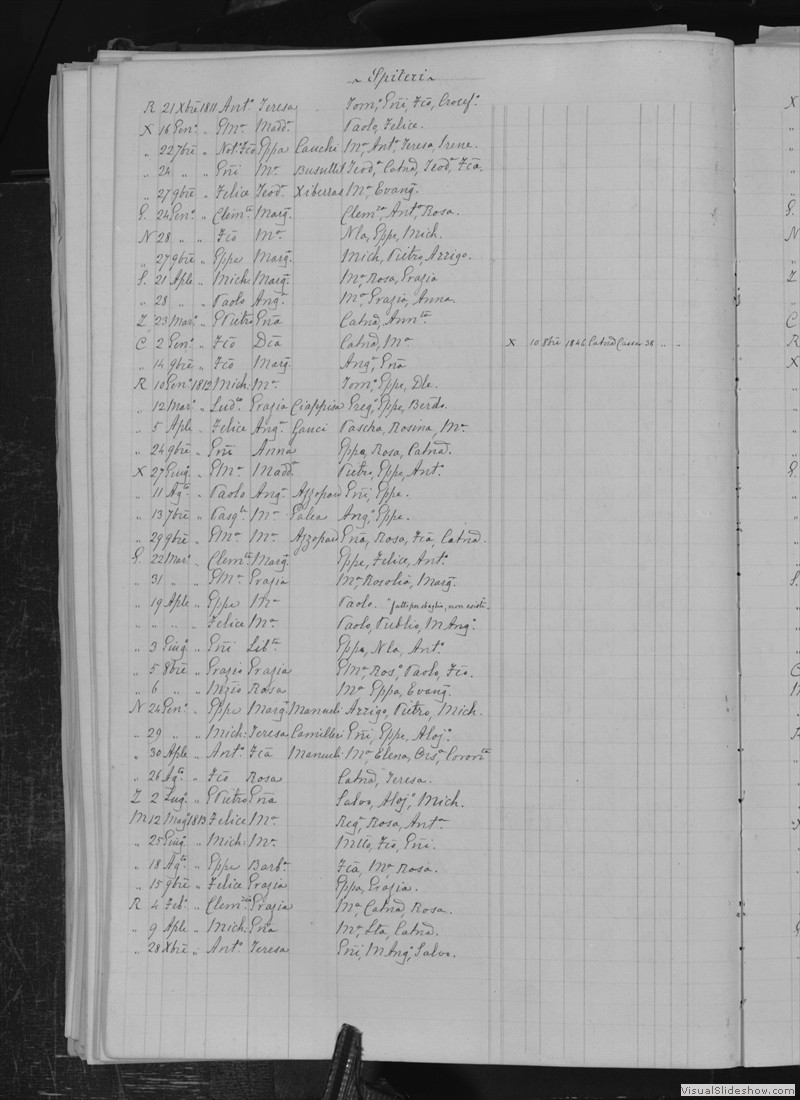 ~ Spiteri ~
R 21 Xbre 1811 Ant.o Teresa Tom.o Gñi, Fco, Crocef.o
X 16 Gen.o " GM.a Madd.a Paolo, Felice.
" 22 7bre " Not.Fco Gppa Cauchi M.a Ant.a Teresa, Irene.
" 24 " " Gñi M.a Busuttil Teod.a Catnd, Teod.a Fca.
" 27 9bre " Felice Teod.a Xiberras M.a Evang.
G. 24 Gen.o " Clem.te Marg. Clem.za Ant.a Rosa.
N 28 " " Fco M.a Nla, Gppe, Mich.
" 27 9bre " Gppe Marg. Mich, Pietro, Arrigo.
S. 21 Aple " Mich: Marg. M.a Rosa, Grazia
" 28 " " Paolo Ang.a M.a Grazia, Anna.
Z 23 Mar.o " GPietro Gña Catnd, Ann.ta
C 2 Gen.o " Fco Dca Catnd, M.a X 10 8bre 1846 Catnd 38 " "
" 14 9bre " Fco Marg. Ang.a Gña
R 10 Gen.o 1812 Mich: M.a Tom.o Gppe, Dle.
" 12 Mar.o " Lud.co Grazia Ciappisa Greg.o Gppe, Berdo.
" 5 Aple " Felice Ang.a Gauci Pascha, Rosina, M.a
" 24 9bre " Gñi Anna Gppa, Rosa, Catnd.
X 27 Giug.o " GM.a Madd.a Pietro, Gppe, Ant.o
" 11 Ag.to " Paolo Ang.a Azzopard Gñi, Gppe.
" 13 7bre " Pasq.le M.a Galea Ang.o Gppe.
" 29 9bre " GM.a M.a Azzopard Gña, Rosa, Fca, Catnd.
G. 22 Mar.o " Clem.te Marg. Gppe, Felice, Ant.o
" 31 " " GM.a Grazia M.a Rosolia, Marg.
" 19 Aple " Gppe M.a Paolo. fatti per sbaglio, non esiste.
" " " " Felice M.a Paolo, Publio, M Ang.o
" 3 Giug.o " Gñi Lib.ta Gppa, Nla, Ant.o
" 5 8bre " Grazio Grazia GM.a Ros.o Paolo, Fco.
" 6 " " Nizio Rosa M.a Gppa, Evang.
N 24 Gen.o " Gppe Marg. Mamueli Arrigo, Pietro, Mich.
" 29 " " Mich: Teresa Camilleri Gñi, Gppe, Aloj.o
" 30 Aple " Ant.o Fca Mamueli M.a Elena, Ors.a Coron.ta
" 26 Ag.to " Fco Rosa Catnd, Teresa.
Z 2 Lug.o " GPietro Gña Salvo, Aloj.o Mich.
M 12 Mag.o 1813 Felice M.a Reg.a Rosa, Ant.a
" 25 Giug.o " Mich: M.a Mtto, Fco, Gñi.
" 18 Ag.to " Gppe Barb.a Fca, M.a Rosa.
" 15 9bre " Felice Grazia Gppa, Grazia.
R 4 Feb.o " Clem.te Grazia M.a Catnd, Rosa.
" 9 Aple " Mich: Gña M.a Sta, Catnd.
" 28 Xbre " Ant.o Teresa Gñi, M Ang.o Salvo.
VisualSlideshow.com